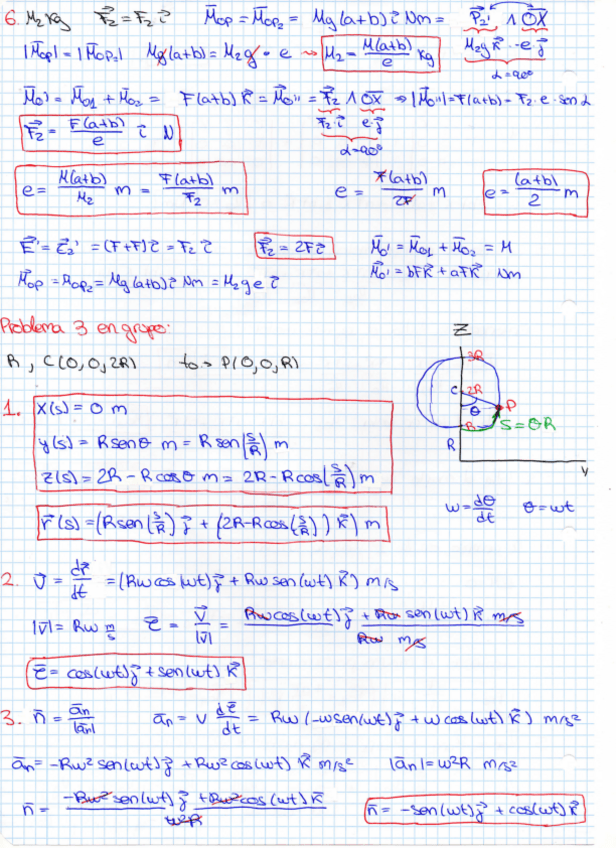 6. M₂ kg F⃗₂ = F₂ i⃗ M⃗op = M⃗op₂ = Mg(a+b) i⃗ Nm = P⃗₂' ∧ O⃗X
|M⃗op| = |M⃗op₂| Mg(a+b) = M₂g · e → M₂ = M(a+b)/e kg M₂g k⃗ -e j⃗
α=90°
M⃗o' = M⃗o1 + M⃗o2 = F(a+b) k⃗ = M⃗o'' = F⃗₂ ∧ O⃗X ⇒ |M⃗o''| = F(a+b) = F₂ · e · sen α
F⃗₂ = F(a+b)/e i⃗ N F₂ · i⃗ e · j⃗
α=90°
e = M(a+b)/M₂ m = F(a+b)/F₂ m e = F(a+b)/2F m e = (a+b)/2 m
E⃗' = E⃗₂' = (F+F) i⃗ = F₂ i⃗ F⃗₂ = 2F i⃗ M⃗o' = M⃗o1 + M⃗o2 = M
M⃗op = M⃗op₂ = Mg(a+b) i⃗ Nm = M₂ g e i⃗ M⃗o' = bF k⃗ + aF k⃗ Nm
Problema 3 en grupo:
R, C(0,0,2R) to → P(0,0,R)
Z
3R
C 2R
θ P
R S=θR
R
Y
1. x(s) = 0 m
y(s) = R senθ m = R sen(s/R) m
z(s) = 2R - R cosθ m = 2R - R cos(s/R) m
r⃗(s) = (R sen(s/R) j⃗ + (2R - R cos(s/R)) k⃗) m
w = dθ/dt θ = wt
2. v⃗ = dr⃗/dt = (Rw cos(wt) j⃗ + Rw sen(wt) k⃗) m/s
|v⃗| = Rw m/s τ⃗ = v⃗/|v⃗| = Rw cos(wt) j⃗ + Rw sen(wt) k⃗ m/s / Rw m/s
τ⃗ = cos(wt) j⃗ + sen(wt) k⃗
3. n⃗ = a⃗n/|a⃗n| a⃗n = v dτ⃗/dt = Rw (-w sen(wt) j⃗ + w cos(wt) k⃗) m/s²
a⃗n = -Rw² sen(wt) j⃗ + Rw² cos(wt) k⃗ m/s² |a⃗n| = w²R m/s²
n⃗ = -Rw² sen(wt) j⃗ + Rw² cos(wt) k⃗ / w²R n⃗ = -sen(wt) j⃗ + cos(wt) k⃗